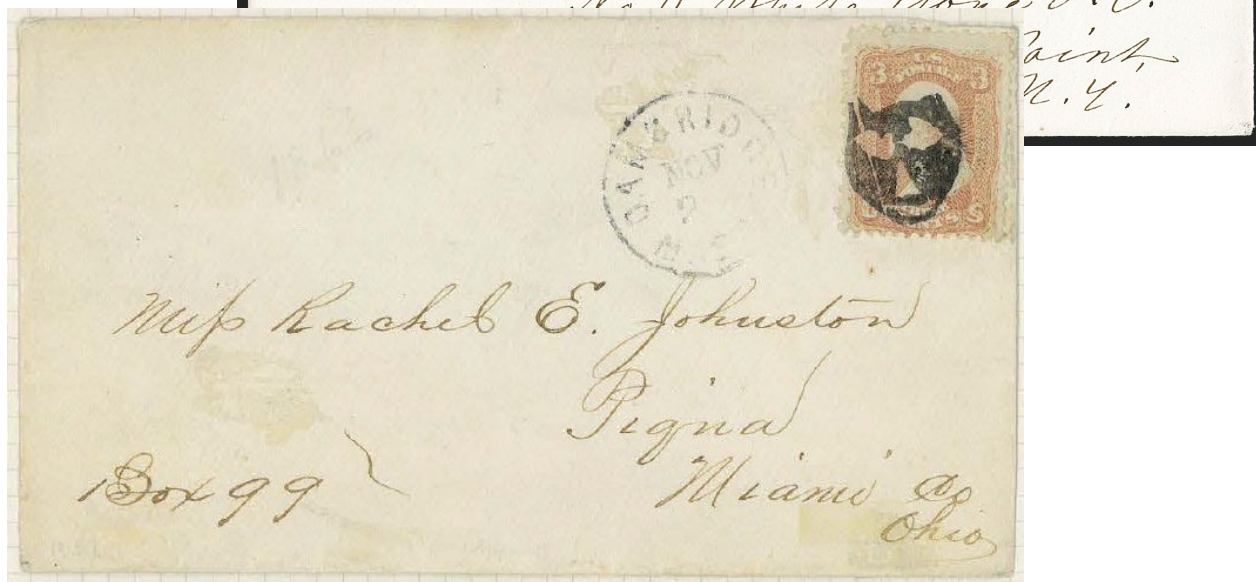 Point,
N.Y.
3 3
CAMBRIDGE
NOV
9
Miss Rachel E. Johnston
Piqua
Miami Co
Ohio
Box 99